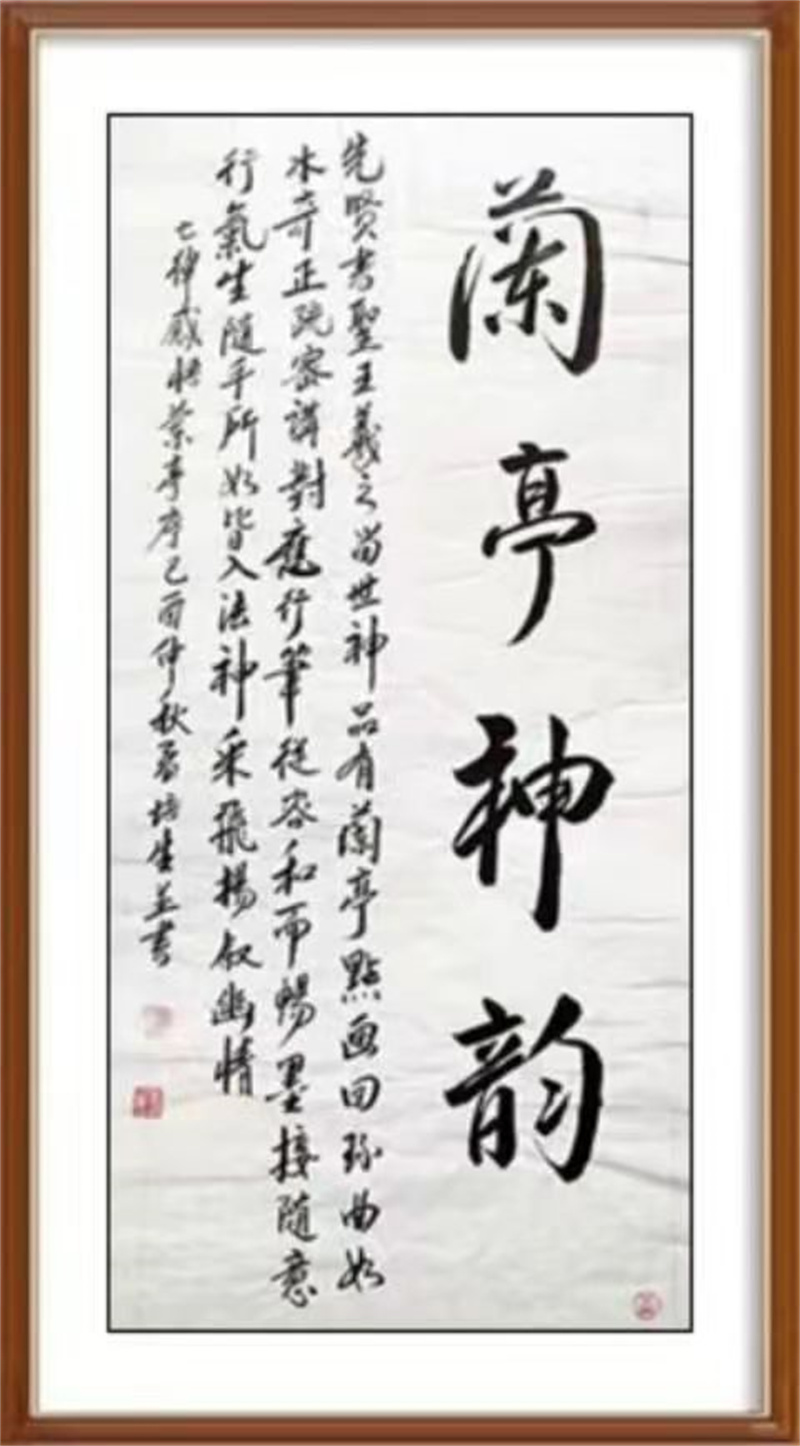 蘭亭神韵
先賢书聖王羲之當世神品有蘭亭點画回环曲如
水奇正疏密講對應行筆從容和而暢墨接隨意
行氣生隨手所如皆入法神采飛揚叙幽情
七律感悟蘭亭序己酉仲秋培生並書